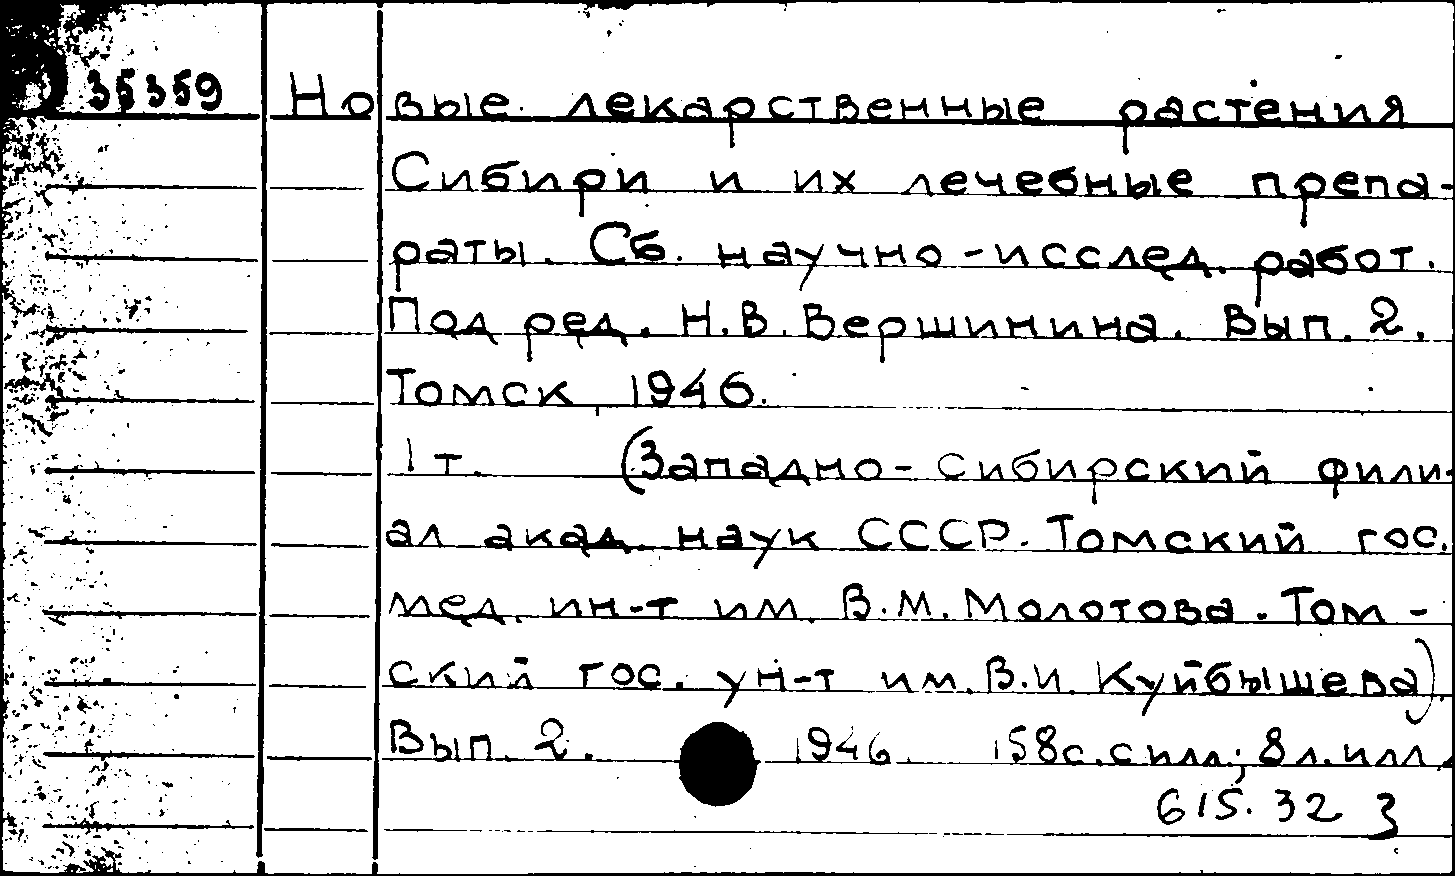 35359 Новые лекарственные растения
Сибири и их лечебные препа-
раты. Сб. научно-исслед. работ.
Под ред. Н.В. Вершинина. Вып. 2.
Томск, 1946.
1 т. (Западно-Сибирский фили-
ал акад. наук СССР. Томский гос.
мед. ин-т им. В.М. Молотова. Том-
ский гос. ун-т им. В.И. Куйбышева).
Вып. 2. 1946. 158с. с илл.; 8 л. илл.
615.32 3